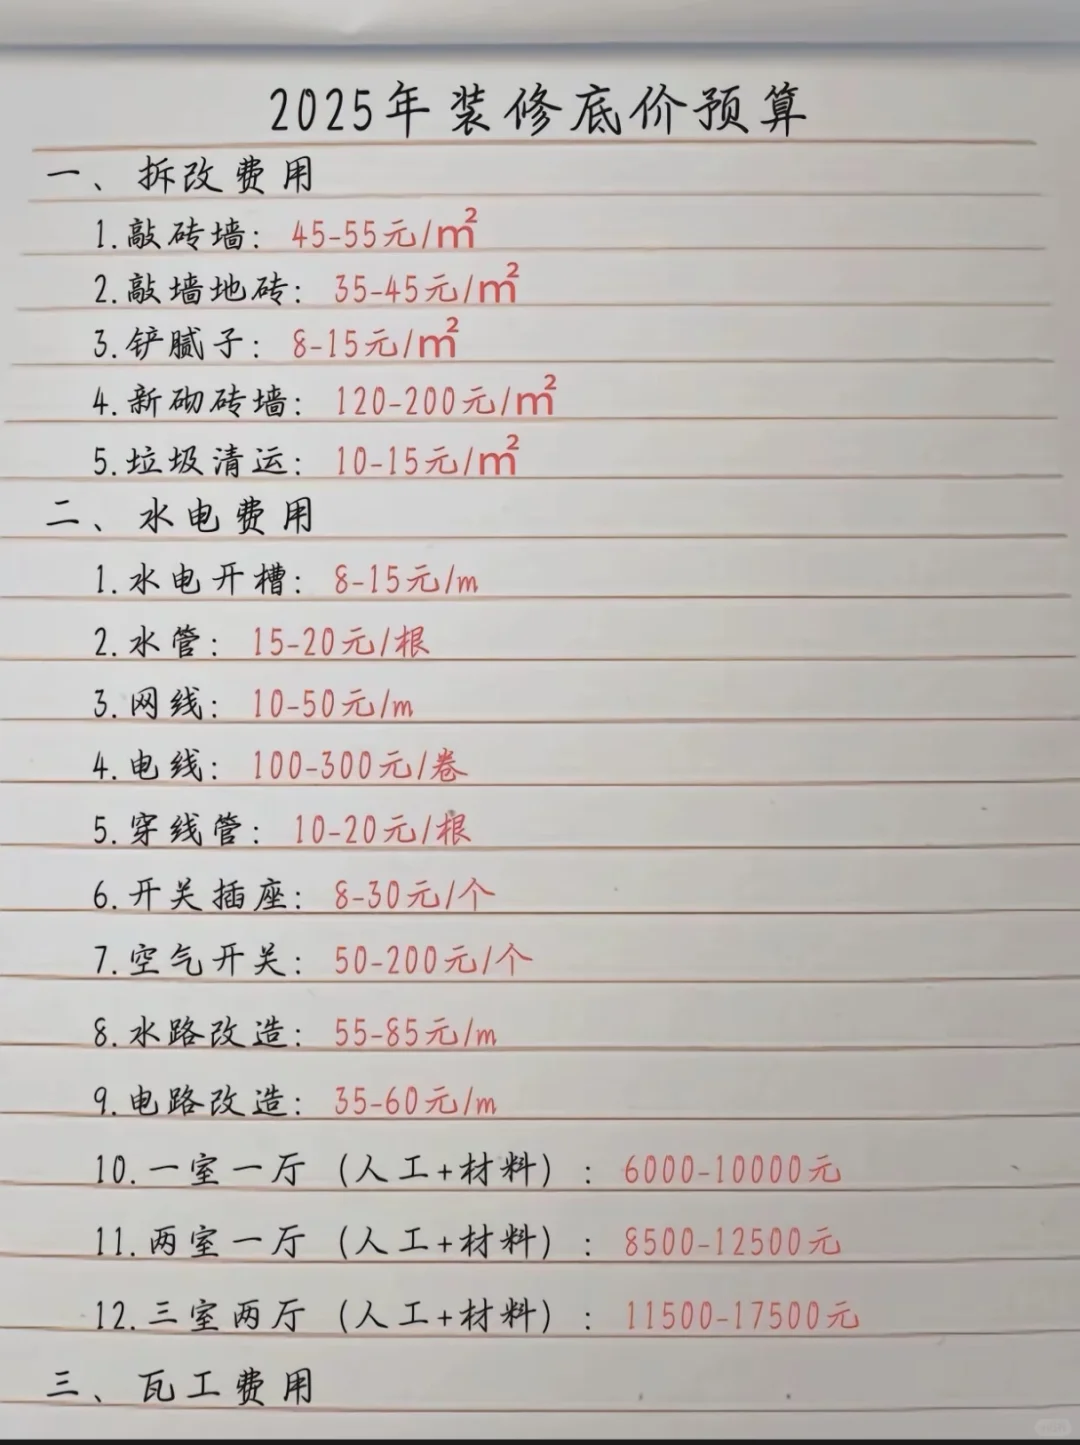 2025年装修底价预算
一、拆改费用
1.敲砖墙：45-55元/㎡
2.敲墙地砖：35-45元/㎡
3.铲腻子：8-15元/㎡
4.新砌砖墙：120-200元/㎡
5.垃圾清运：10-15元/㎡
二、水电费用
1.水电开槽：8-15元/m
2.水管：15-20元/根
3.网线：10-50元/m
4.电线：100-300元/卷
5.穿线管：10-20元/根
6.开关插座：8-30元/个
7.空气开关：50-200元/个
8.水路改造：55-85元/m
9.电路改造：35-60元/m
10.一室一厅（人工+材料）：6000-10000元
11.两室一厅（人工+材料）：8500-12500元
12.三室两厅（人工+材料）：11500-17500元
三、瓦工费用